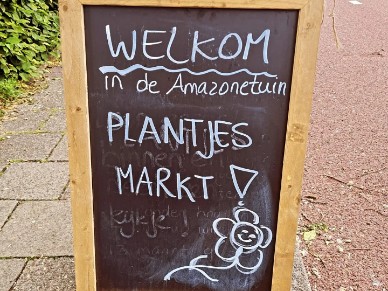 WELKOM
in de Amazonetuin
PLANTJES
MARKT!